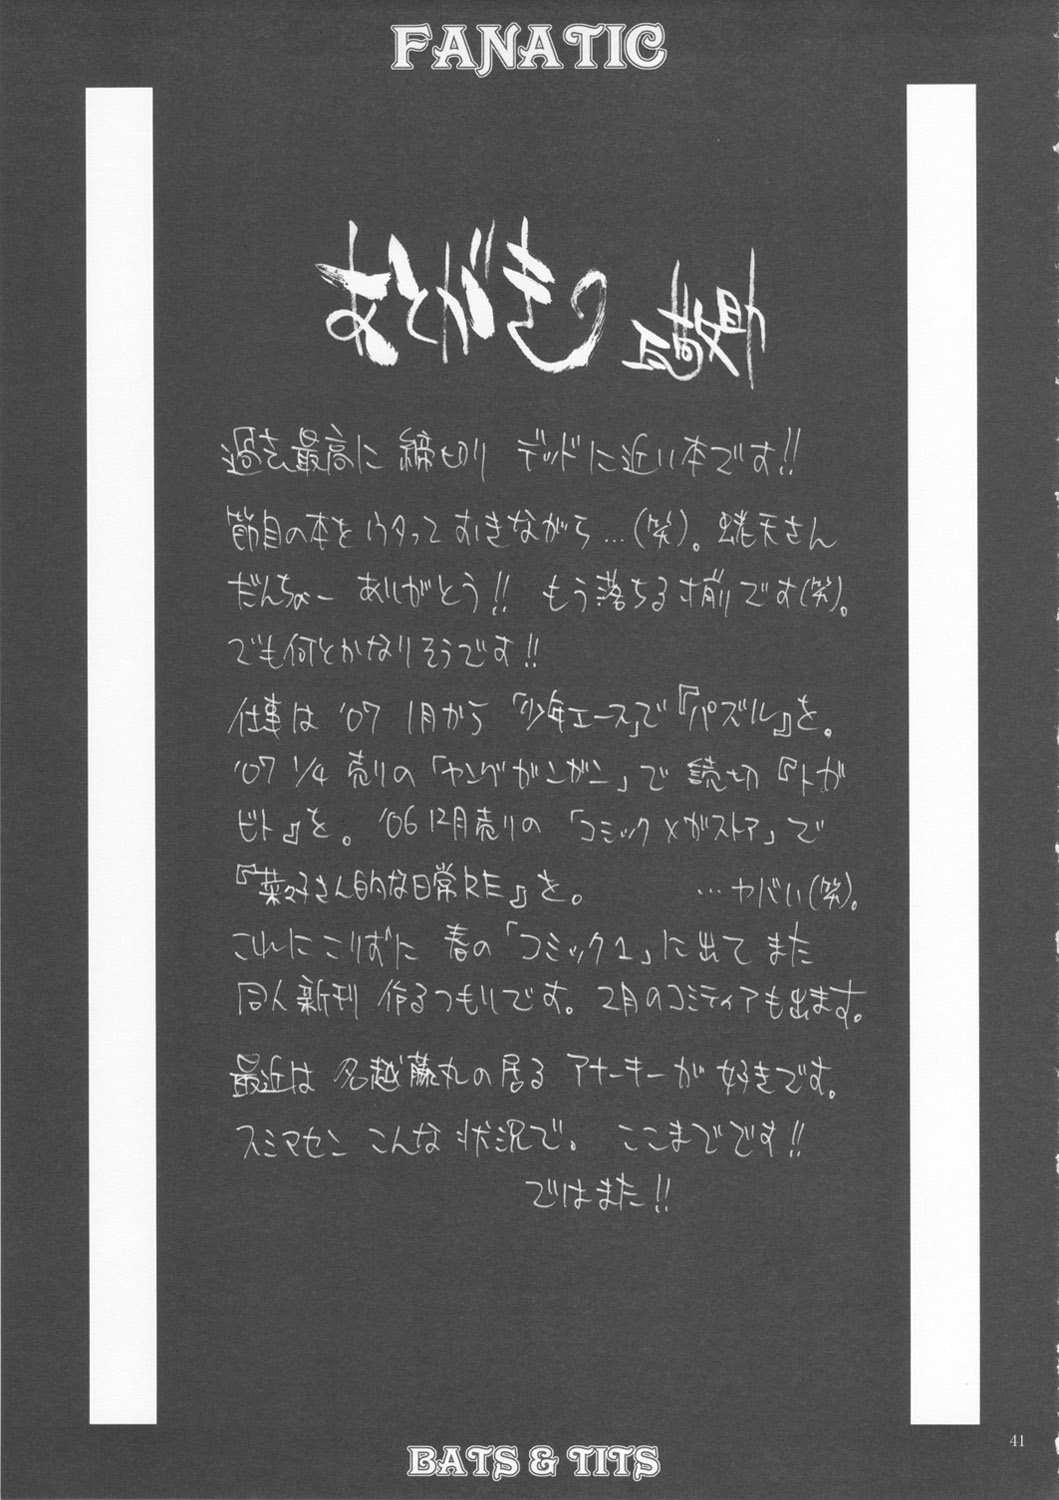 FANATIC
あとがき
過去最高に 締切り デッドに近い本です!!
節目の本を ウタって おきながら…(笑)。 天さん
だんちょー ありがとう!! もう落ちる寸前です(笑)。
でも何とかなりそうです!!
仕事は '07 1月から 「少年エース」で『パズル』を。
'07 1/4 売りの 「ヤングガンガン」で 読切 『トガ
ビト』を。 '06 12月売りの 「コミック×ガストア」で
『菜々子さん的な日常RE』を。 …ヤバい(笑)。
これにこりずに 春の「コミック1」に出て また
同人新刊 作るつもりです。2月のコミティアも出ます。
最近は 名越藤丸の居る アナーキーが 好きです。
スミマセン こんな 状況で。 ここまでです!!
ではまた!!
BATS & TITS
41